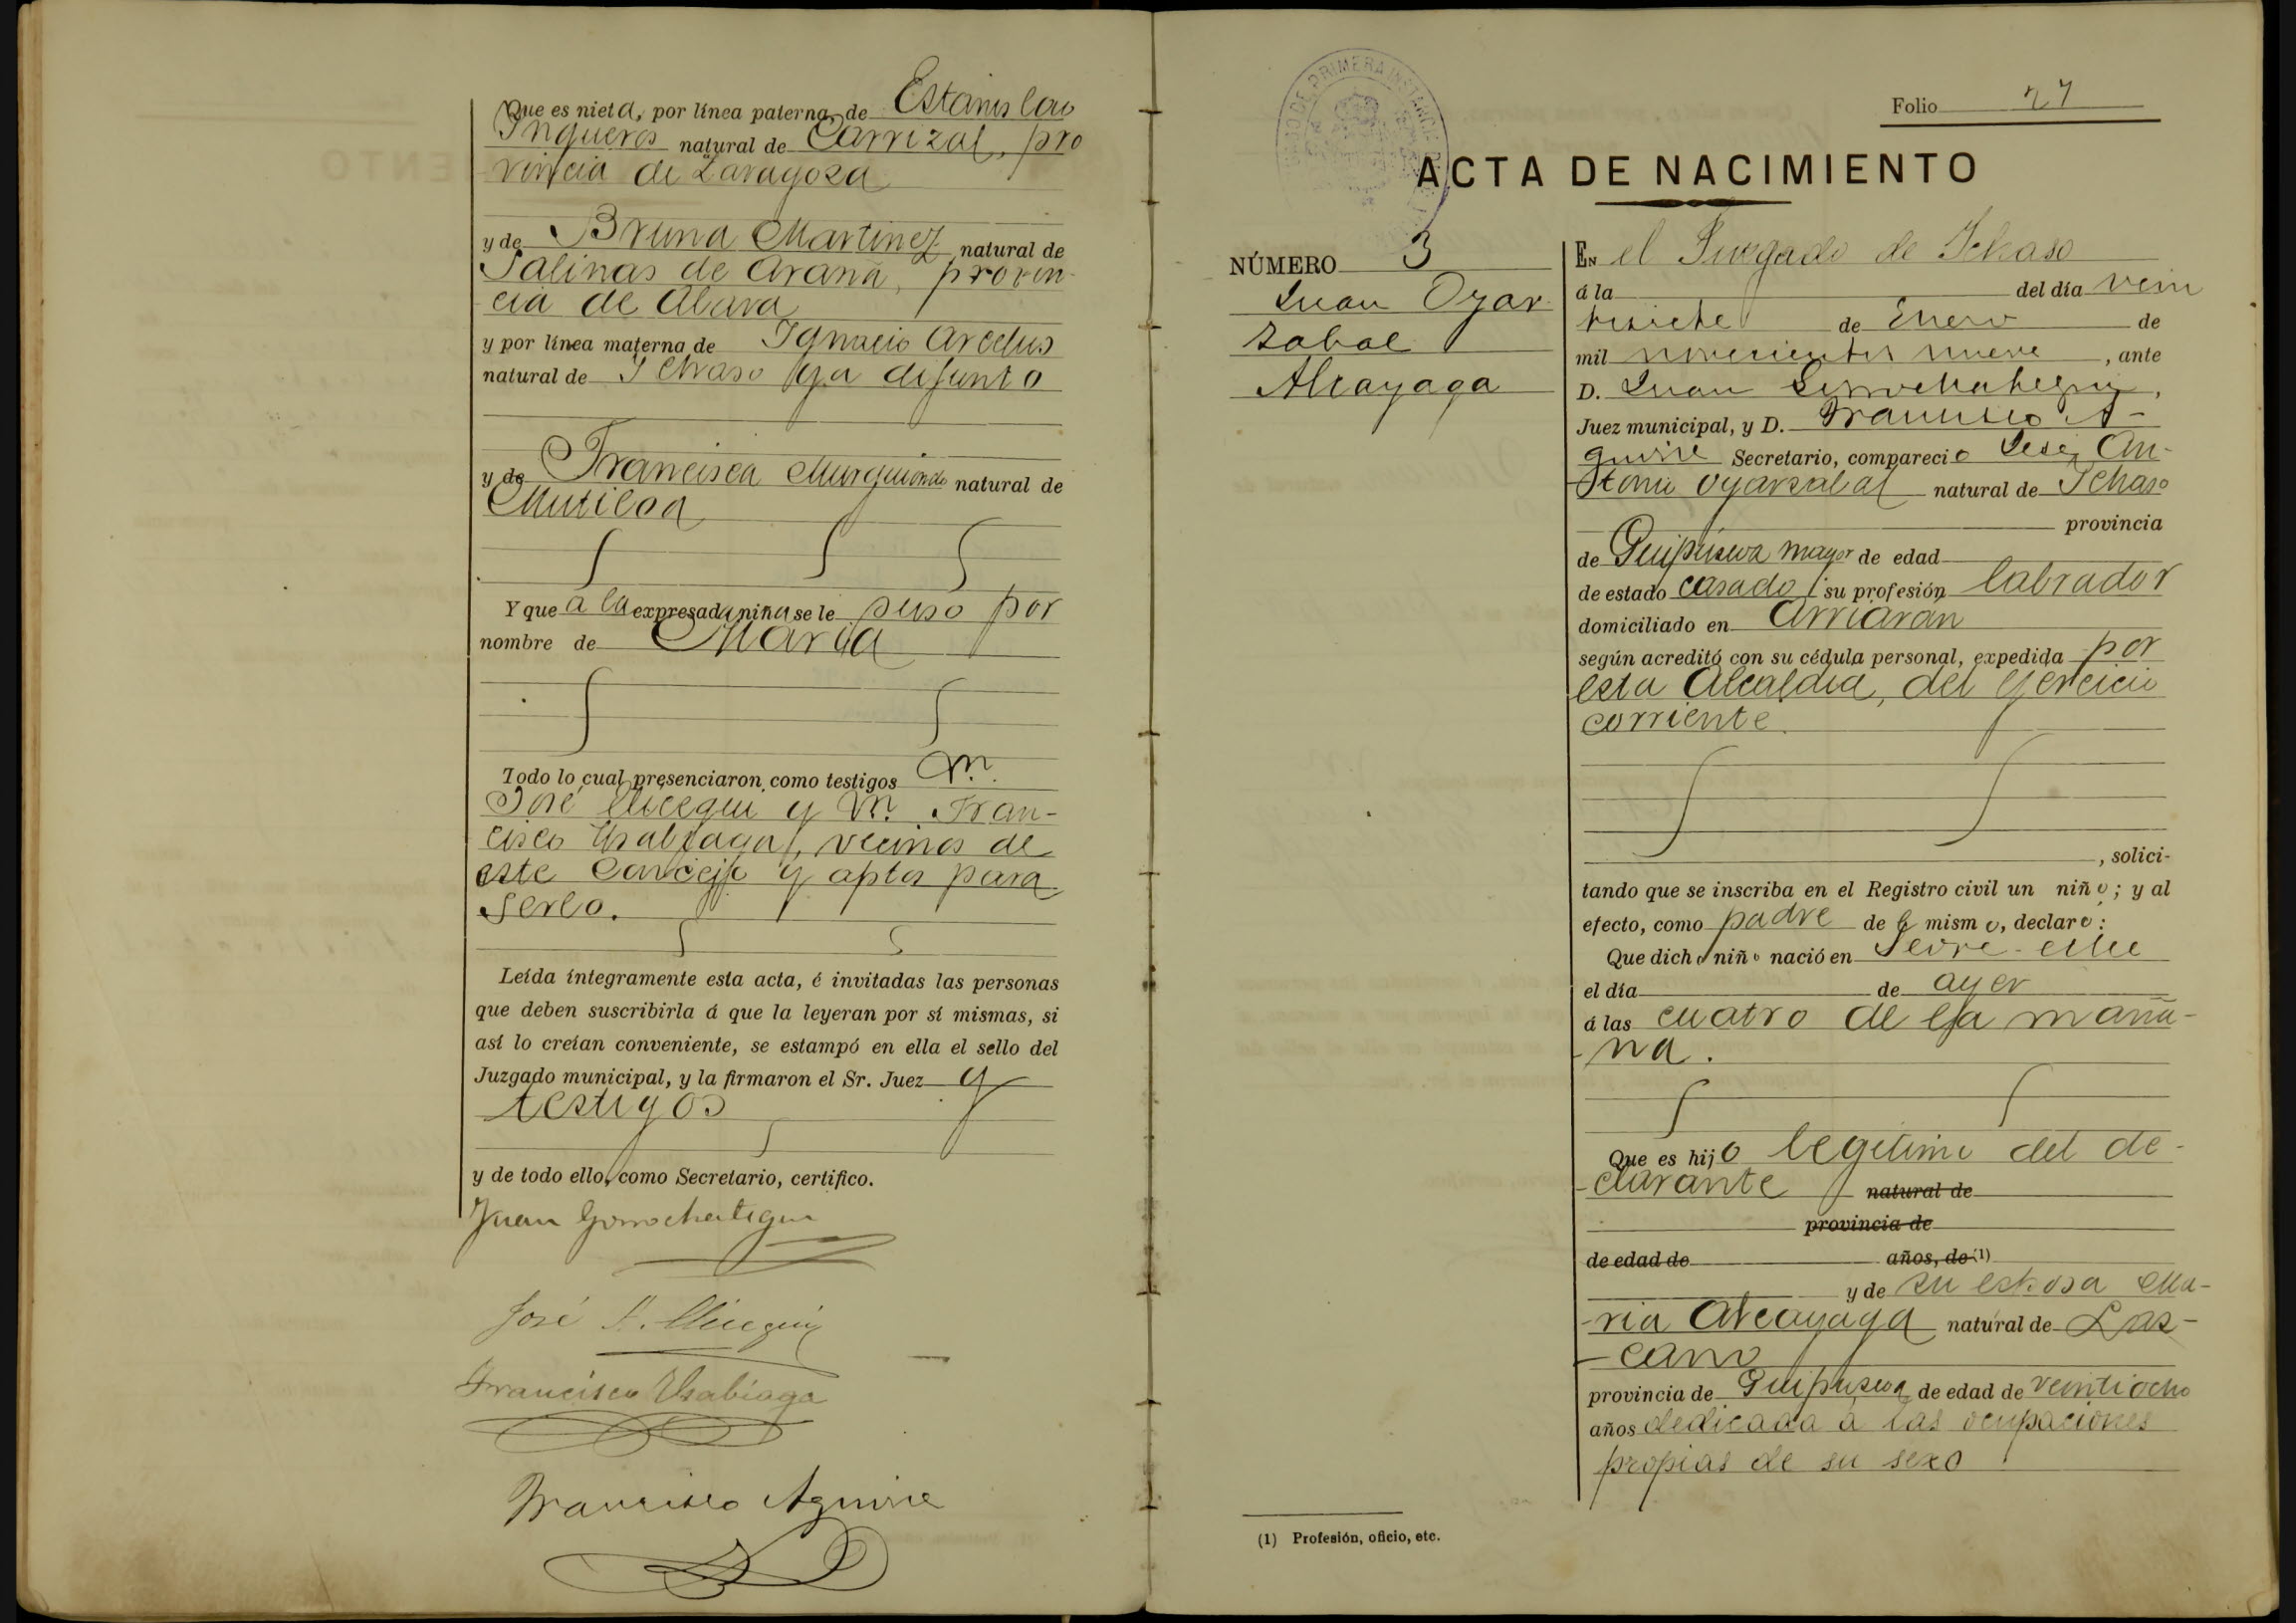 Que es nieta, por línea paterna, de Estanislao
Ynqueros natural de Carrizal, pro
vincia de Zaragoza
y de Bruna Martinez natural de
Salinas de Arana, provin-
cia de Alava
y por línea materna de Ignacio Arcelus
natural de Ichaso ya difunto
y de Francisca Murguiondo natural de
Mutiloa
Y que a la expresada niña se le puso por
nombre de Maria
Todo lo cual presenciaron como testigos Dn.
José y Dn. Fran-
cisco Usabiaga, vecinos de
este Concejo y aptos para
serlo.
Leída íntegramente esta acta, é invitadas las personas
que deben suscribirla á que la leyeran por sí mismas, si
así lo creían conveniente, se estampó en ella el sello del
Juzgado municipal, y la firmaron el Sr. Juez y
testigos
y de todo ello, como Secretario, certifico.
Juan Gorrochategui
José
Francisco Usabiaga
Francisco Aguirre
JUZGADO DE PRIMERA INSTANCIA
Folio 27
ACTA DE NACIMIENTO
NÚMERO 3
Juan Oyar-
zabal
Alcayaga
EN el Juzgado de Ichaso
á la del día vein
tisiete de Enero de
mil novecientos nueve, ante
D. Juan Gorrochategui,
Juez municipal, y D. Francisco A-
guirre Secretario, compareció José An-
tonio Oyarzabal natural de Ichaso
provincia
de Guipúzcoa mayor de edad
de estado casado su profesión labrador
domiciliado en Arriarán
según acreditó con su cédula personal, expedida por
esta Alcaldia, del ejercicio
corriente.
, solici-
tando que se inscriba en el Registro civil un niño; y al
efecto, como padre de l mismo, declaro:
Que dicho niño nació en
el día de ayer
á las cuatro de la maña-
na.
Que es hijo legitimo del de-
clarante natural de
provincia de
de edad de años, de (1)
y de su esposa Ma-
ria Alcayaga natural de Laz-
cano
provincia de Guipuzcoa de edad de veintiocho
años dedicada á las ocupaciones
propias de su sexo
(1) Profesión, oficio, etc.